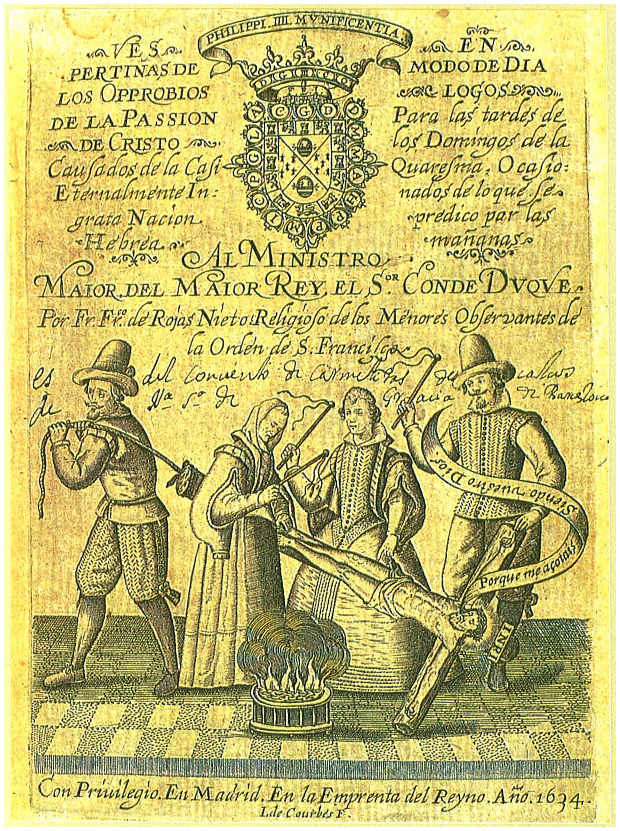 PHILIPPI. IIII. MVNIFICENTIA.
VES
PERTINAS DE
LOS OPPROBIOS
DE LA PASSION
DE CRISTO
Causados de la Casi
Eternalmente In:
grata Nacion
Hebrea
EN
MODO DE DIA
LOGOS
Para las tardes de
los Domingos de la
Quaresma, Ocasio:
nados de lo que se
predico par las
mañanas
AL MINISTRO
MAIOR. DEL MAIOR REY, EL S.OR CONDE DVQVE
Por Fr. Frº. de Rojas Nieto. Religioso de los Menores Observantes de
la Orden de S. Francisco
es del convento de Carmelitas
de de Gracia de
Siendo vuestro Dios
Porque me açotais
INRI
Con Priuilegio. En Madrid. En la Emprenta del Reyno. Año. 1634.
I. de Courbes F.